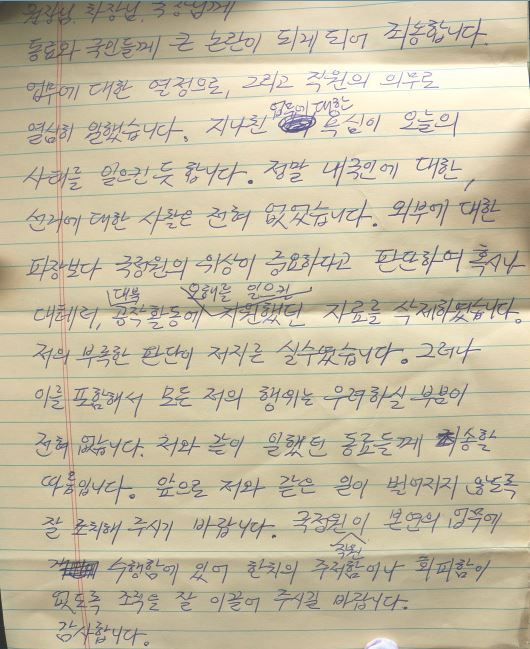 원장님, 차장님, 국장님께
동료와 국민들께 큰 논란이 되게 되어 죄송합니다.
업무에 대한 열정으로, 그리고 직원의 의무로
열심히 일했습니다. 지나친 업무에 대한 욕심이 오늘의
사태를 일으킨 듯 합니다. 정말 내국인에 대한,
선거에 대한 사찰은 전혀 없었습니다. 외부에 대한
파장보다 국정원의 위상이 중요하다고 판단하여 혹시나
대테러, 대북 공작활동에 오해를 일으킨 지원했던 자료를 삭제하였습니다.
저의 부족한 판단이 저지른 실수였습니다. 그러나
이를 포함해서 모든 저의 행위는 우려하실 부분이
전혀 없습니다. 저와 같이 일했던 동료들께 죄송할
따름입니다. 앞으로 저와 같은 일이 벌어지지 않도록
잘 조치해 주시기 바랍니다. 국정원 직원이 본연의 업무에
수행함에 있어 한치의 주저함이나 회피함이
없도록 조직을 잘 이끌어 주시길 바랍니다.
감사합니다.